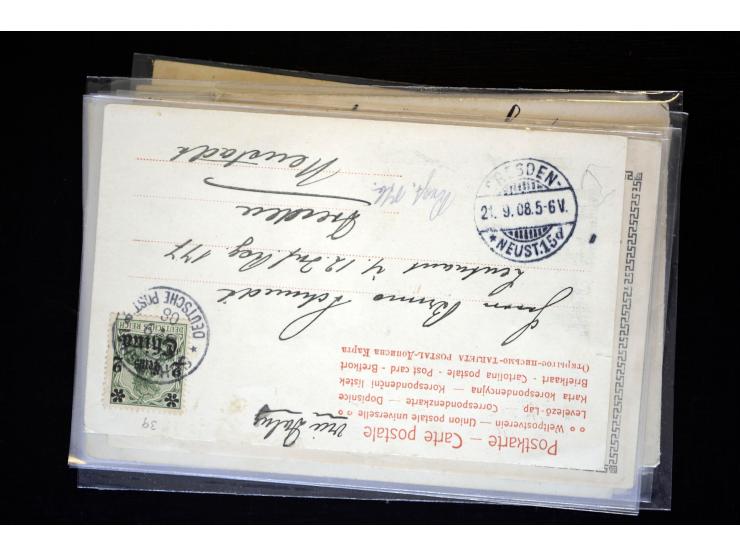 Postkarte — Carte postale
Weltpostverein — Union postale universelle
Levelező-Lap — Correspondenzkarte — Dopisnice
Karta korespondencyjna — Korespondenční lístek
Briefkaart — Cartolina postale — Post card - Brefkort
Открытое-письмо-TARJETA POSTAL-Дописна Карта
via Sib
Herrn Bruno Schmidt
Leutnant i/ 12 Inf Reg 177
Dresden
Neustadt
DRESDEN-
21. 9. 08. 5-6 V.
* NEUST. 15d
DEUTSCHE POST
08
DEUTSCHES REICH
China
2
2
39